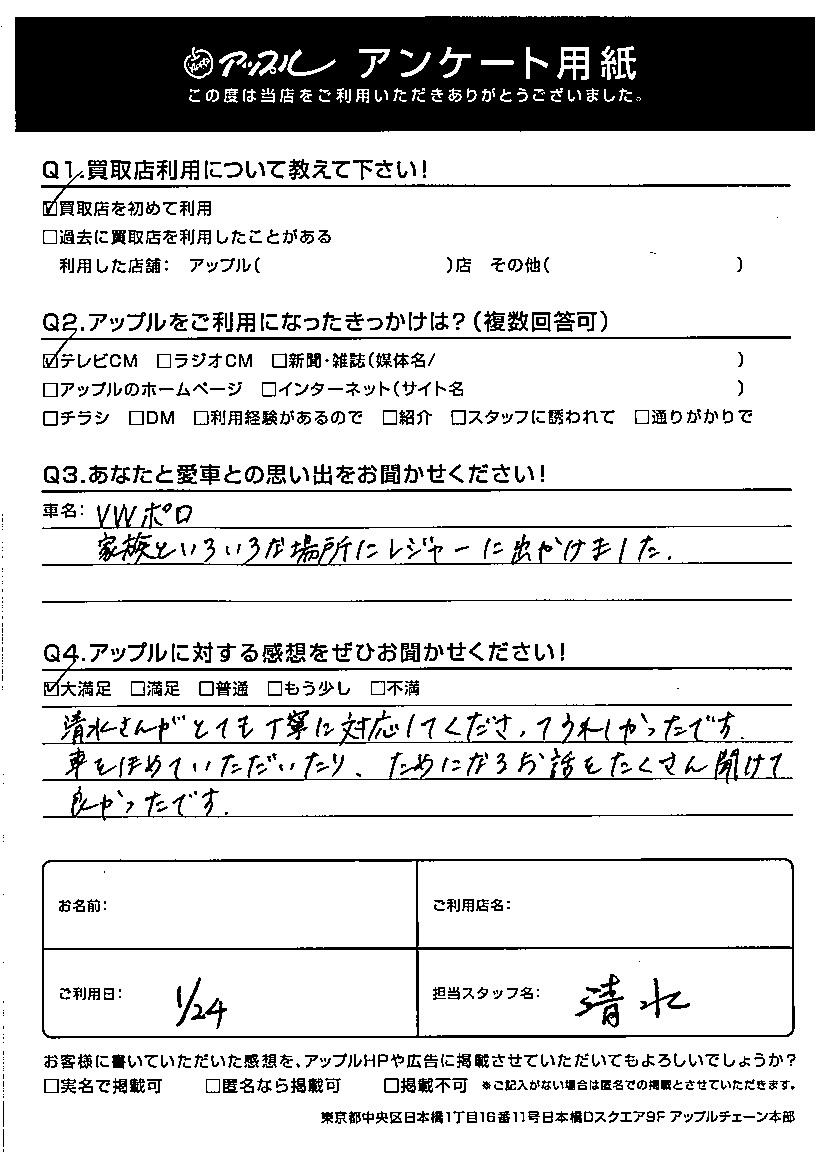 アップル アンケート用紙
この度は当店をご利用いただきありがとうございました。
Q1.買取店利用について教えて下さい!
☑買取店を初めて利用
□過去に買取店を利用したことがある
利用した店舗: アップル( )店 その他( )
Q2.アップルをご利用になったきっかけは?(複数回答可)
☑テレビCM □ラジオCM □新聞・雑誌(媒体名/ )
□アップルのホームページ □インターネット(サイト名 )
□チラシ □DM □利用経験があるので □紹介 □スタッフに誘われて □通りがかりで
Q3.あなたと愛車との思い出をお聞かせください!
車名: VWポロ
家族といろいろな場所にレジャーに出かけました.
Q4.アップルに対する感想をぜひお聞かせください!
☑大満足 □満足 □普通 □もう少し □不満
清水さんがとても丁寧に対応してくださってうれしかったです.
車をほめていただいたり、ためになるお話をたくさん聞けて
良かったです.
お名前: ご利用店名:
ご利用日: 1/24 担当スタッフ名: 清水
お客様に書いていただいた感想を、アップルHPや広告に掲載させていただいてもよろしいでしょうか?
□実名で掲載可 □匿名なら掲載可 □掲載不可 ※ご記入がない場合は匿名での掲載とさせていただきます。
東京都中央区日本橋1丁目16番11号日本橋Dスクエア9F アップルチェーン本部